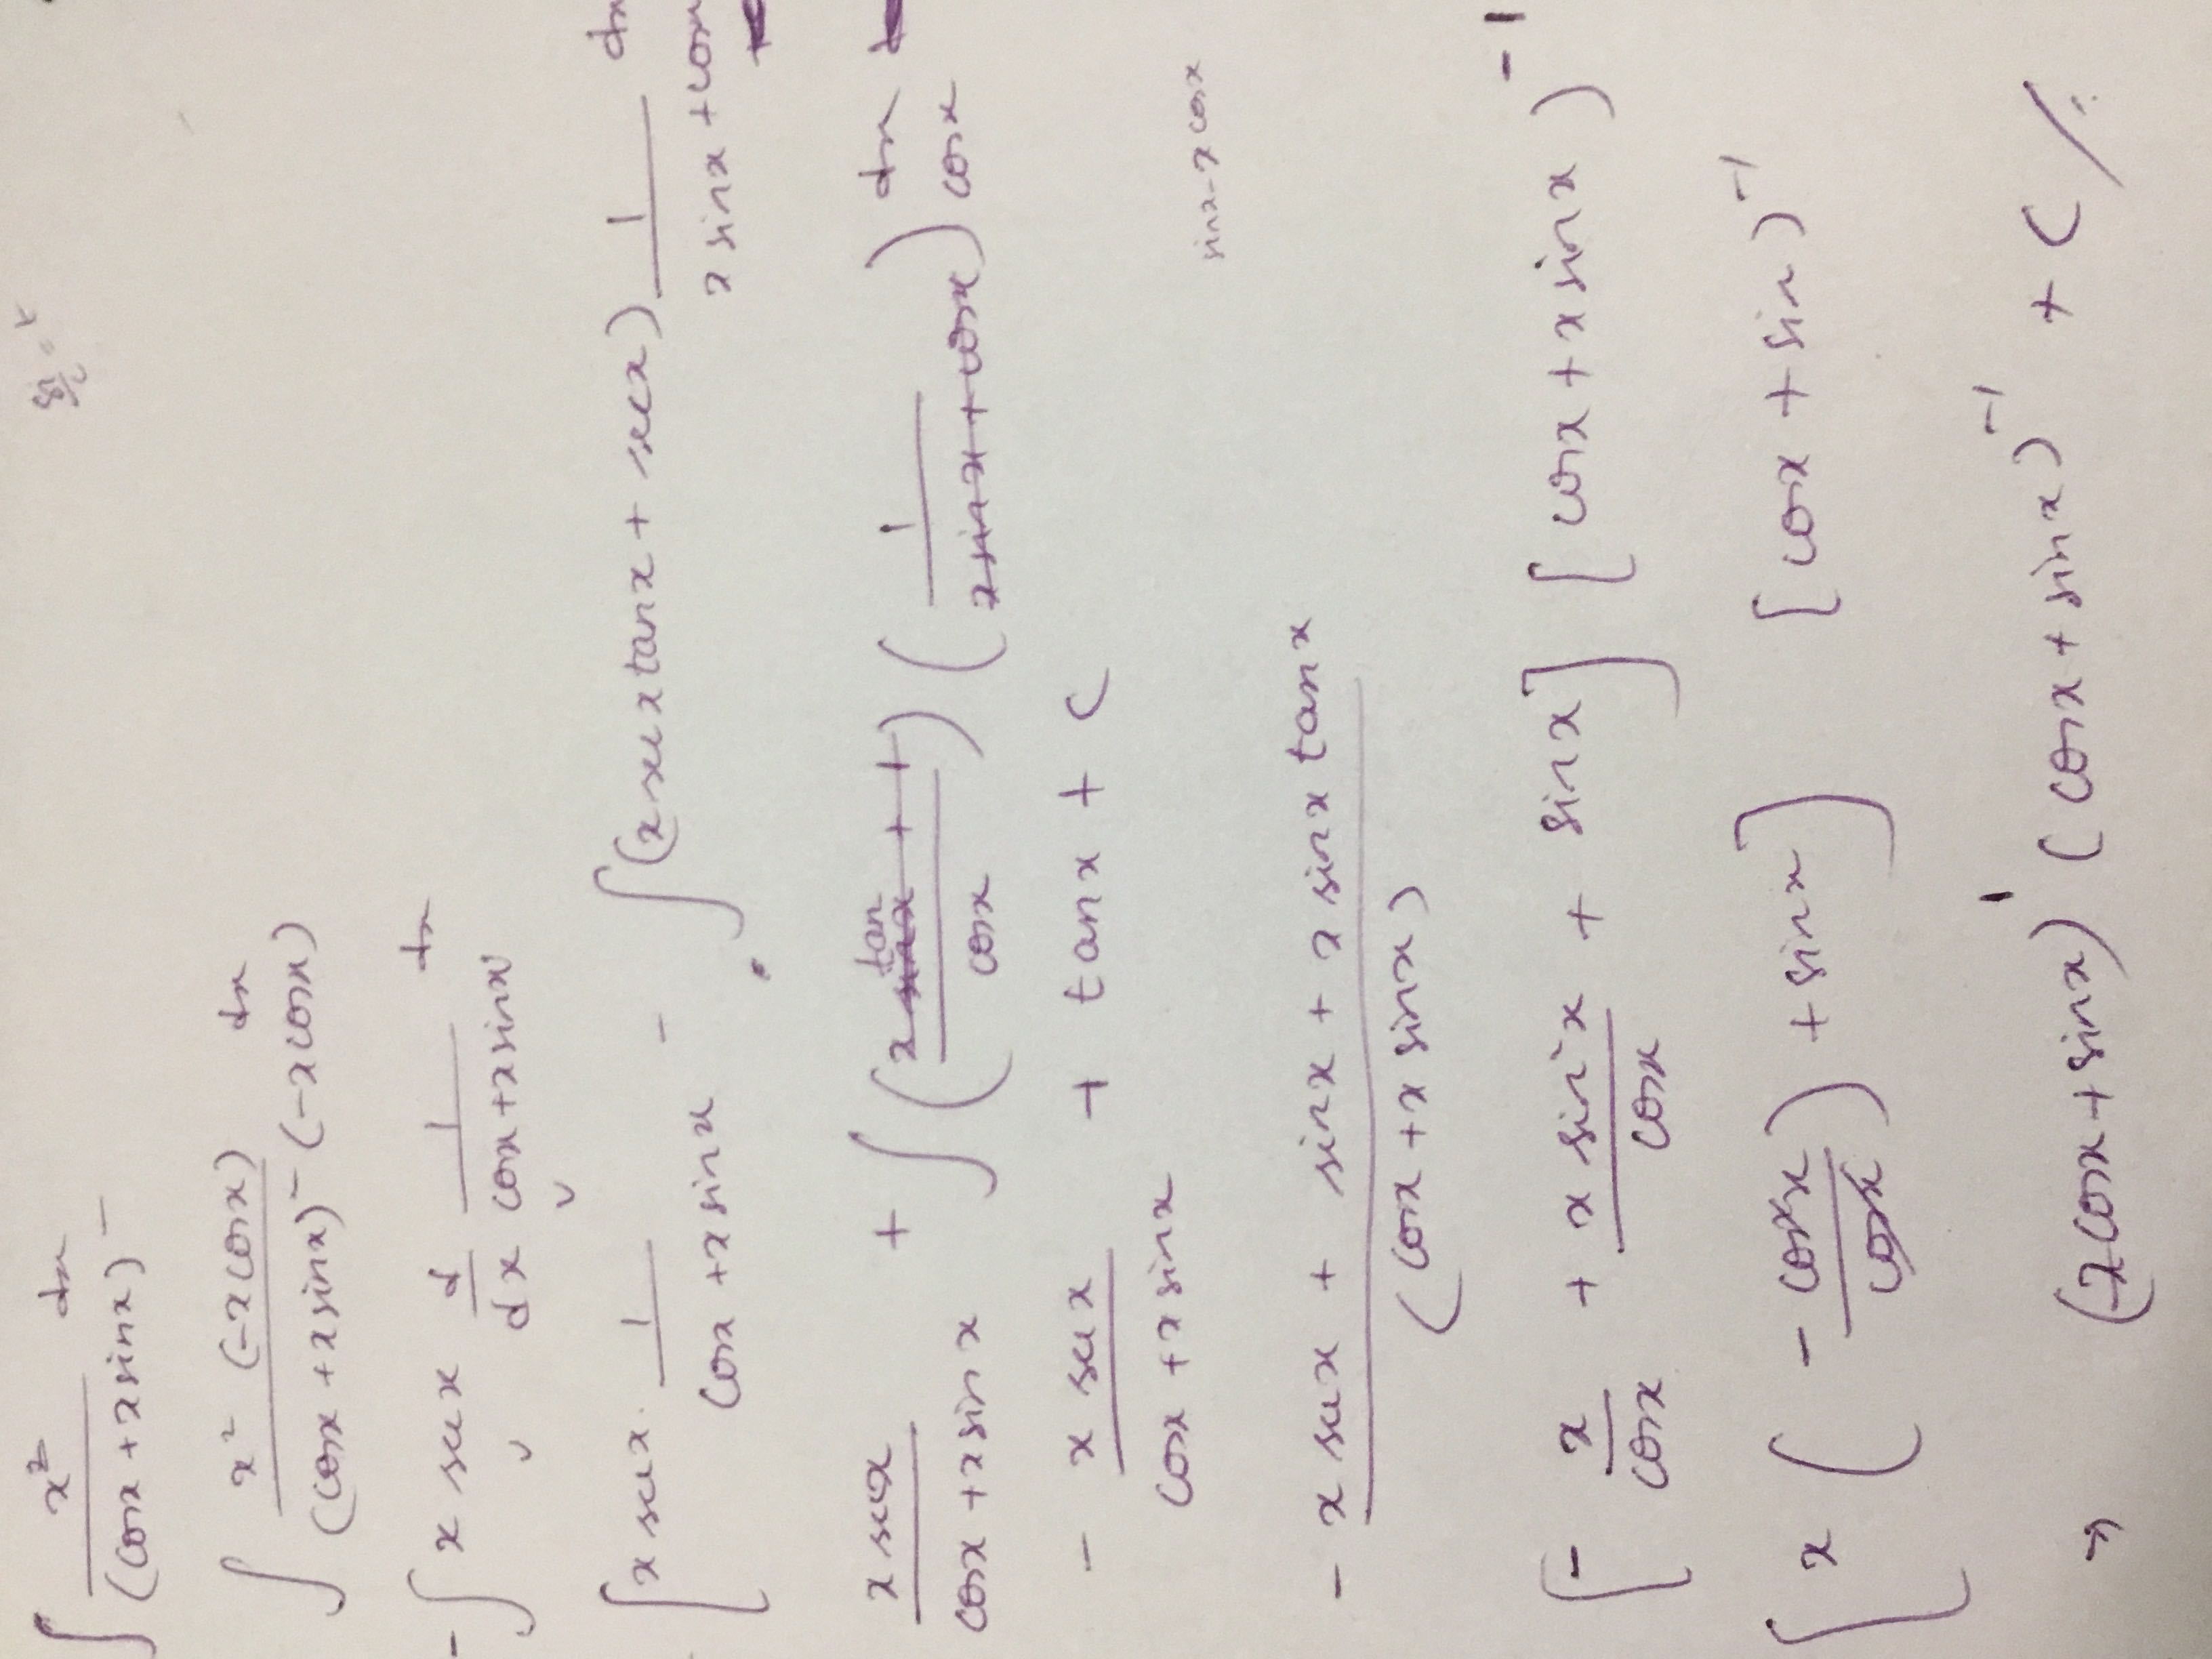 ∫ x² / (cosx + x sinx)⁻ dx
∫ x² (-x cosx) / (cosx + x sinx)⁻ (-x cosx) dx
- ∫ x secx d/dx 1 / cosx + x sinx dx
[ x secx · 1 / cosx + x sinx - ∫ (x secx tanx + secx) 1 / x sinx + cosx dx
x secx / cosx + x sinx + ∫ ( x tan + 1 / cosx ) ( 1 / x sinx + cosx ) dx cosx
- x secx / cosx + x sinx + tanx + C
sinx - x cosx
- x secx + sinx + x sinx tanx / (cosx + x sinx)
[ - x / cosx + x sin²x / cosx + sinx ] [ cosx + x sinx )⁻¹
[ x ( - cos²x / cosx ) + sinx ] [ cosx + sin )⁻¹
⇒ (x cosx + sinx)¹ (cosx + sinx)⁻¹ + C //